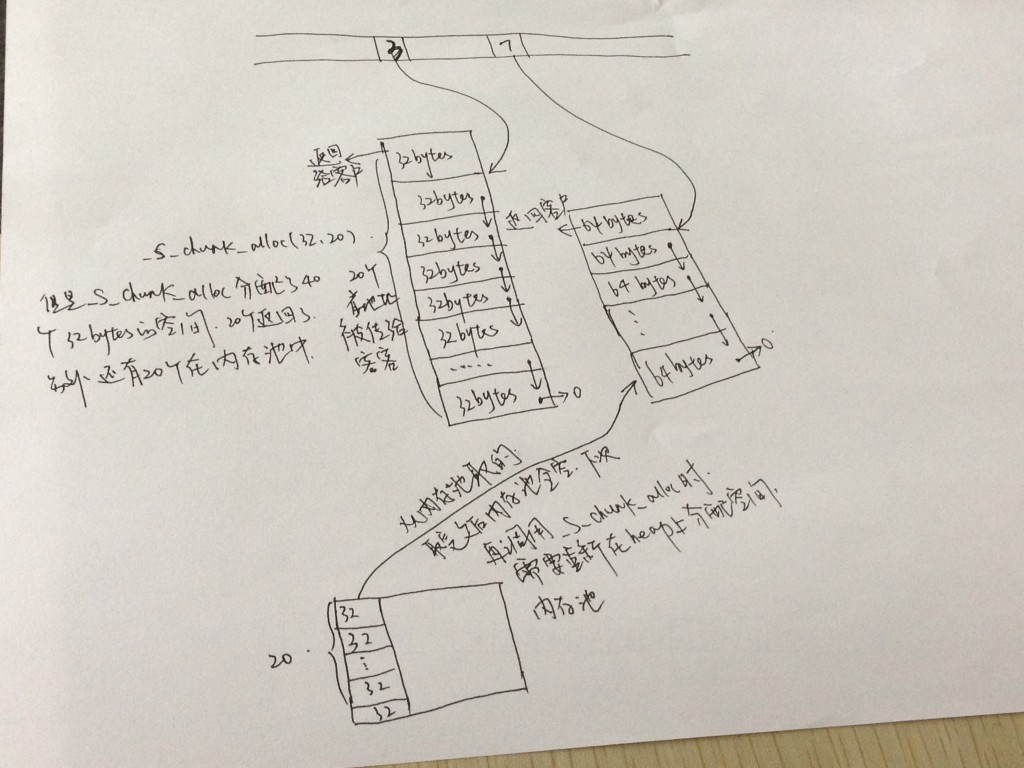 3 7
返回
给客户
32bytes
32bytes
32bytes
32bytes
32bytes
32bytes
.....
32bytes
0
_S_chunk_alloc(32,20)
但是_S_chunk_alloc分配了40
个32bytes的空间.20个返回了.
另外还有20个在内存池中.
20个
被传给
返回客户
64bytes
64bytes
64 bytes
64 bytes
0
从内存池取的
取完之后内存池全空.下次
再调用_S_chunk_alloc时.
需要重新在heap上分配空间.
内存池
20
32
32
32
32